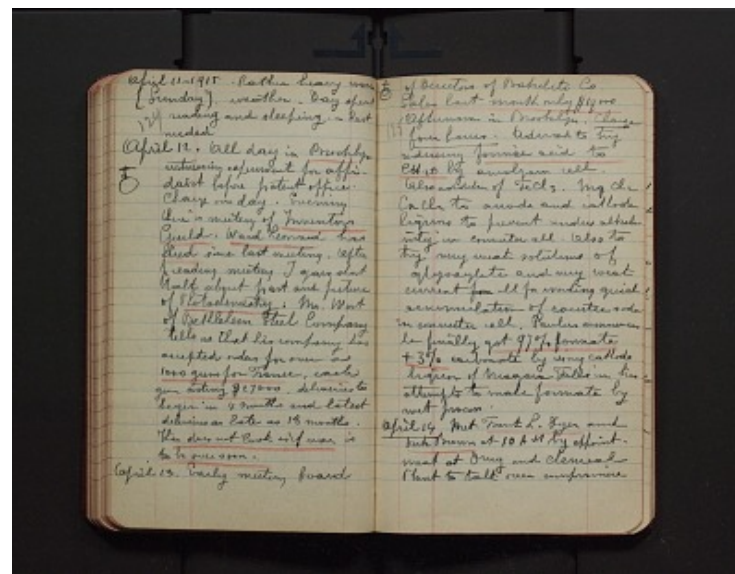 April 11-1915. Rather heavy
[Sunday]. weather. Day spent
reading and sleeping. Rest
needed
April 12. All day in Brooklyn
witnessing experiment for affi-
davit before patent office.
Charge one day. Evening
dinner meeting of Inventors
Guild. Ward Leonard has
died since last meeting. After
reading meeting I gave short
talk about past and future
of Photochemistry. Mr. West
of Bethlehem Steel Company
tells us that his company has
accepted orders for over a
1000 guns for France, each
gun costing $27000. deliveries to
begin in 8 months and latest
deliveries as late as 18 months.
This does not look as if war is
to be over soon.
April 13. Early meeting board
of Directors of Bakelite Co
Sales last month only
Afternoon in Brooklyn. Charge
four hours. Advised to try
reducing formic acid to
CH2O by amalgam cell.
Also adden of FeCl3. Mg Cl2
CaCl2 to anode and cathode
liquors to prevent undue alkali-
nity in cell. Also to
try very weak solutions of
and very weak
current for avoiding quick
accumulation of caustic soda
in cell. Paulus announces
he finally got 97% formate
+ 3% carbonate by using cathode
liquor of Niagara Falls in his
attempts to make formate by
wet process.
April 14. Met Frank L. Dyer and
Brown at 10 AM by appoint-
ment at Drug and Chemical
to talk over compromise